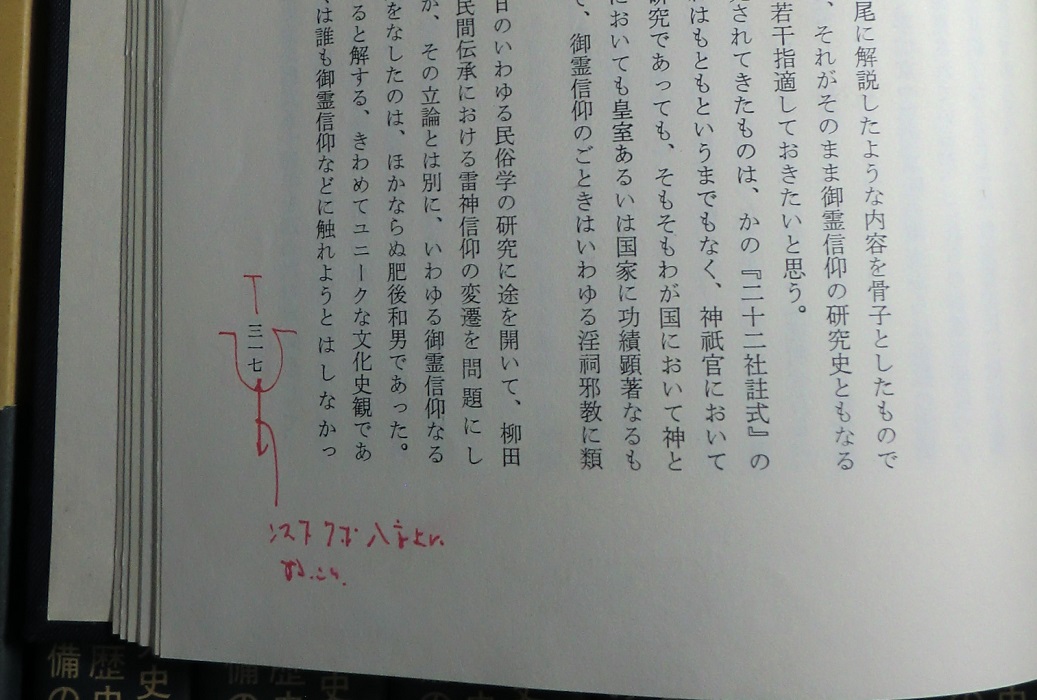 尾に解説したような内容を骨子としたもので
、それがそのまま御霊信仰の研究史ともなる
若干指適しておきたいと思う。
されてきたものは、かの『二十二社註式』の
はもともというまでもなく、神祇官において
研究であっても、そもそもわが国において神と
においても皇室あるいは国家に功績顕著なるも
て、御霊信仰のごときはいわゆる淫祠邪教に類
日のいわゆる民俗学の研究に途を開いて、柳田
民間伝承における雷神信仰の変遷を問題にし
か、その立論とは別に、いわゆる御霊信仰なる
をなしたのは、ほかならぬ肥後和男であった。
ると解する、きわめてユニークな文化史観であ
は誰も御霊信仰などに触れようとはしなかっ
三一七
史
歴史
備の